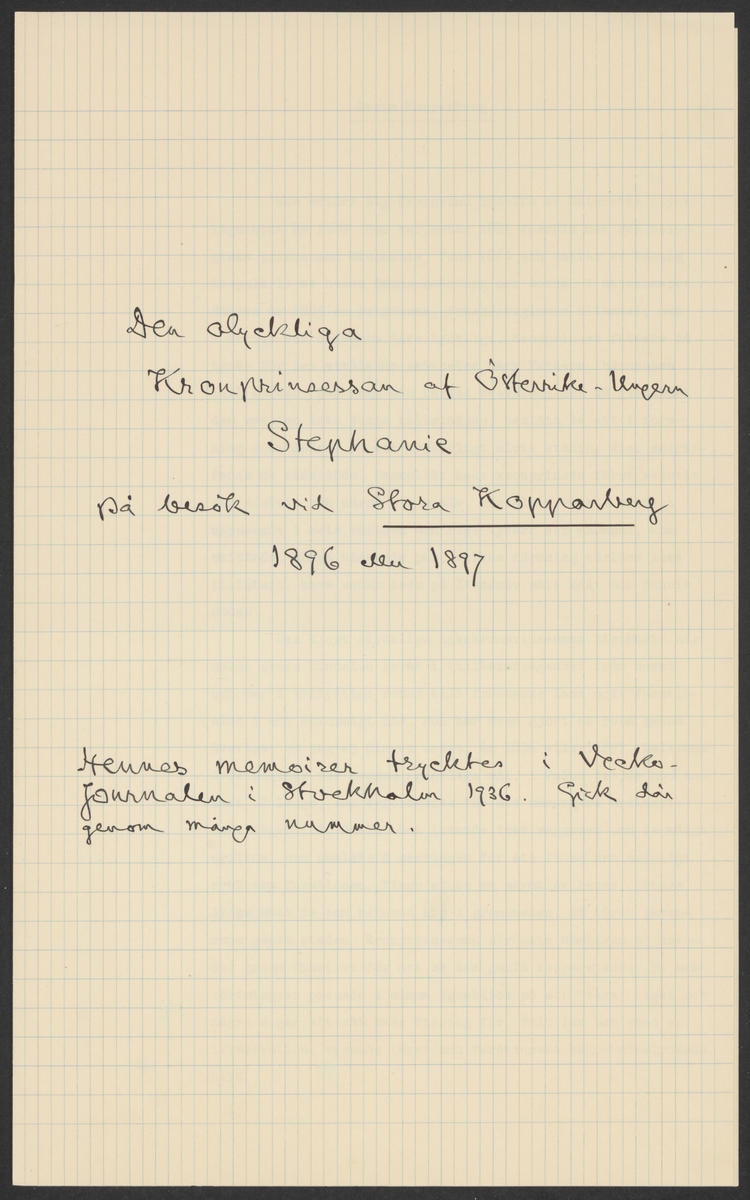 Den olyckliga
Kronprinsessan af Österrike-Ungern
Stephanie
på besök vid Stora Kopparberg
1896 eller 1897
Hennes memoirer trycktes i Vecko-
Journalen i Stockholm 1936. Gick där
genom många nummer.